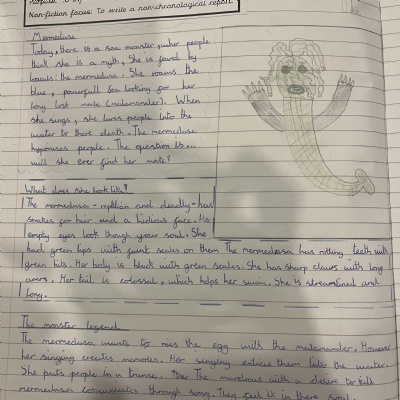 Non-fiction focus: To write a non-chronological report.
Mermedusa
Today, there is a sea monster, who people
think she is a myth. She is feared by
locals: the mermedusa. She roams the
blue, powerfull sea looking for her
long lost mate (malamander). When
she sings, she lures people into the
water to there death. The mermedusa
hypnotises people. The question is...
will she ever find her mate?
What does she look like?
The mermedusa - reptilian and deadly - has
snakes for hair and a hidious face. Her
empty eyes look though your soul. She
had green lips with faint scales on them. The mermedusa has rotting teeth with
green bits. Her body is black with green scales. She has sharp claws with long
arms. Her tail is colossal, which helps her swim. She is streamlined and
long.
The monster legend
The mermedusa wants to the egg with the malamander. However
her singing creates memories. Her singing entices them into the water.
She puts people in a trance. The with a desire to kill
mermedusa comunicates through song. They feel it in there soul.